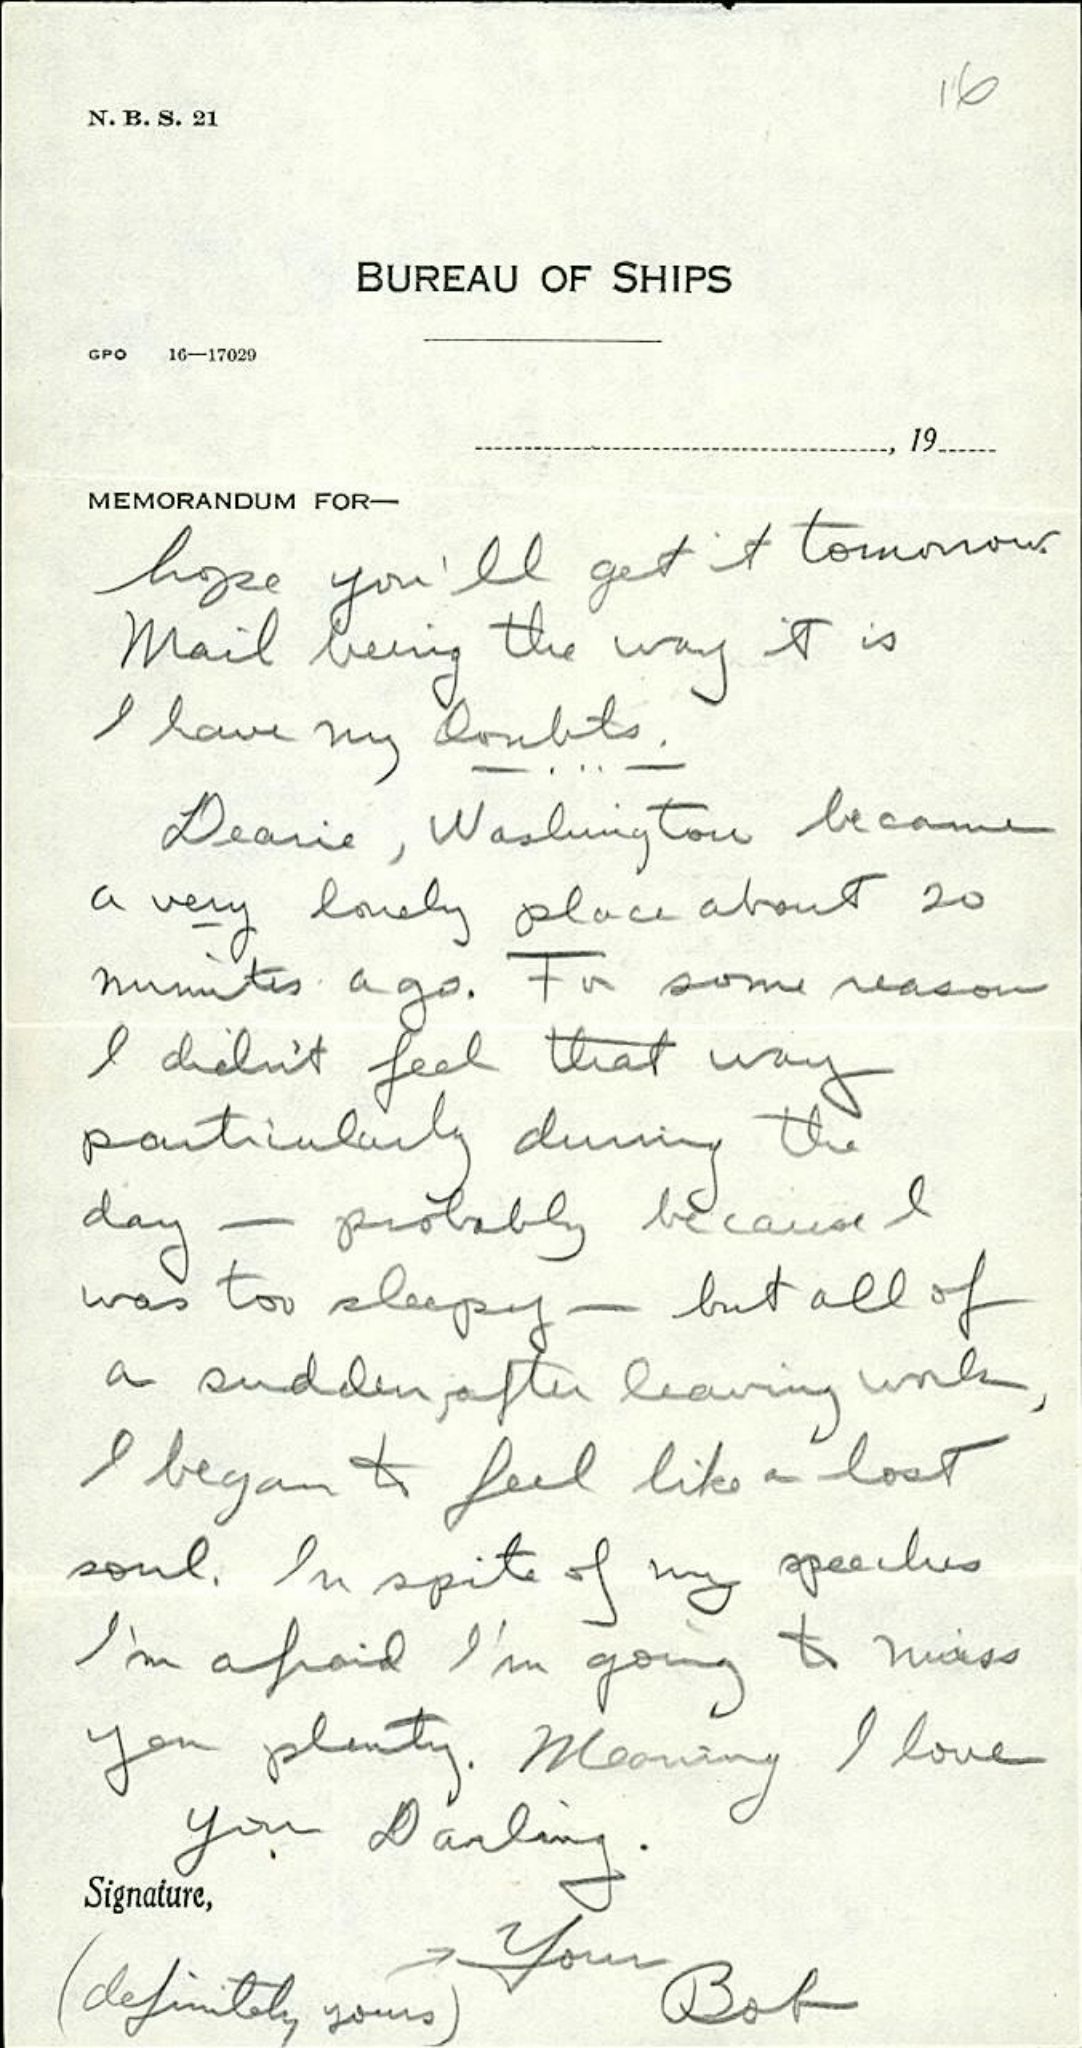 16
N. B. S. 21
BUREAU OF SHIPS
GPO 16—17029
, 19
MEMORANDUM FOR—
hope you'll get it tomorrow.
Mail being the way it is
I have my doubts.
Dearie, Washington became
a very lonely place about 20
minutes ago. For some reason
I didn't feel that way
particularly during the
day — probably because I
was too sleepy — but all of
a sudden, after leaving work,
I began to feel like a lost
soul. In spite of my speeches
I'm afraid I'm going to miss
you plenty. Meaning I love
you Darling.
Signature,
Your
(definitely yours)
Bob